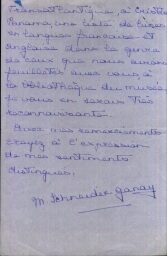 Transatlantique, à Cristobal
Panama, une liste de livres
en langues française et
anglaise dans le genre
de ceux que nous avons
feuilletés avec vous à
la bibliothèque du musée,
je vous en serais très
reconnaissante
Avec mes remerciements
croyez à l'expression
de mes sentiments
distingués.
M. Schneider Ganay